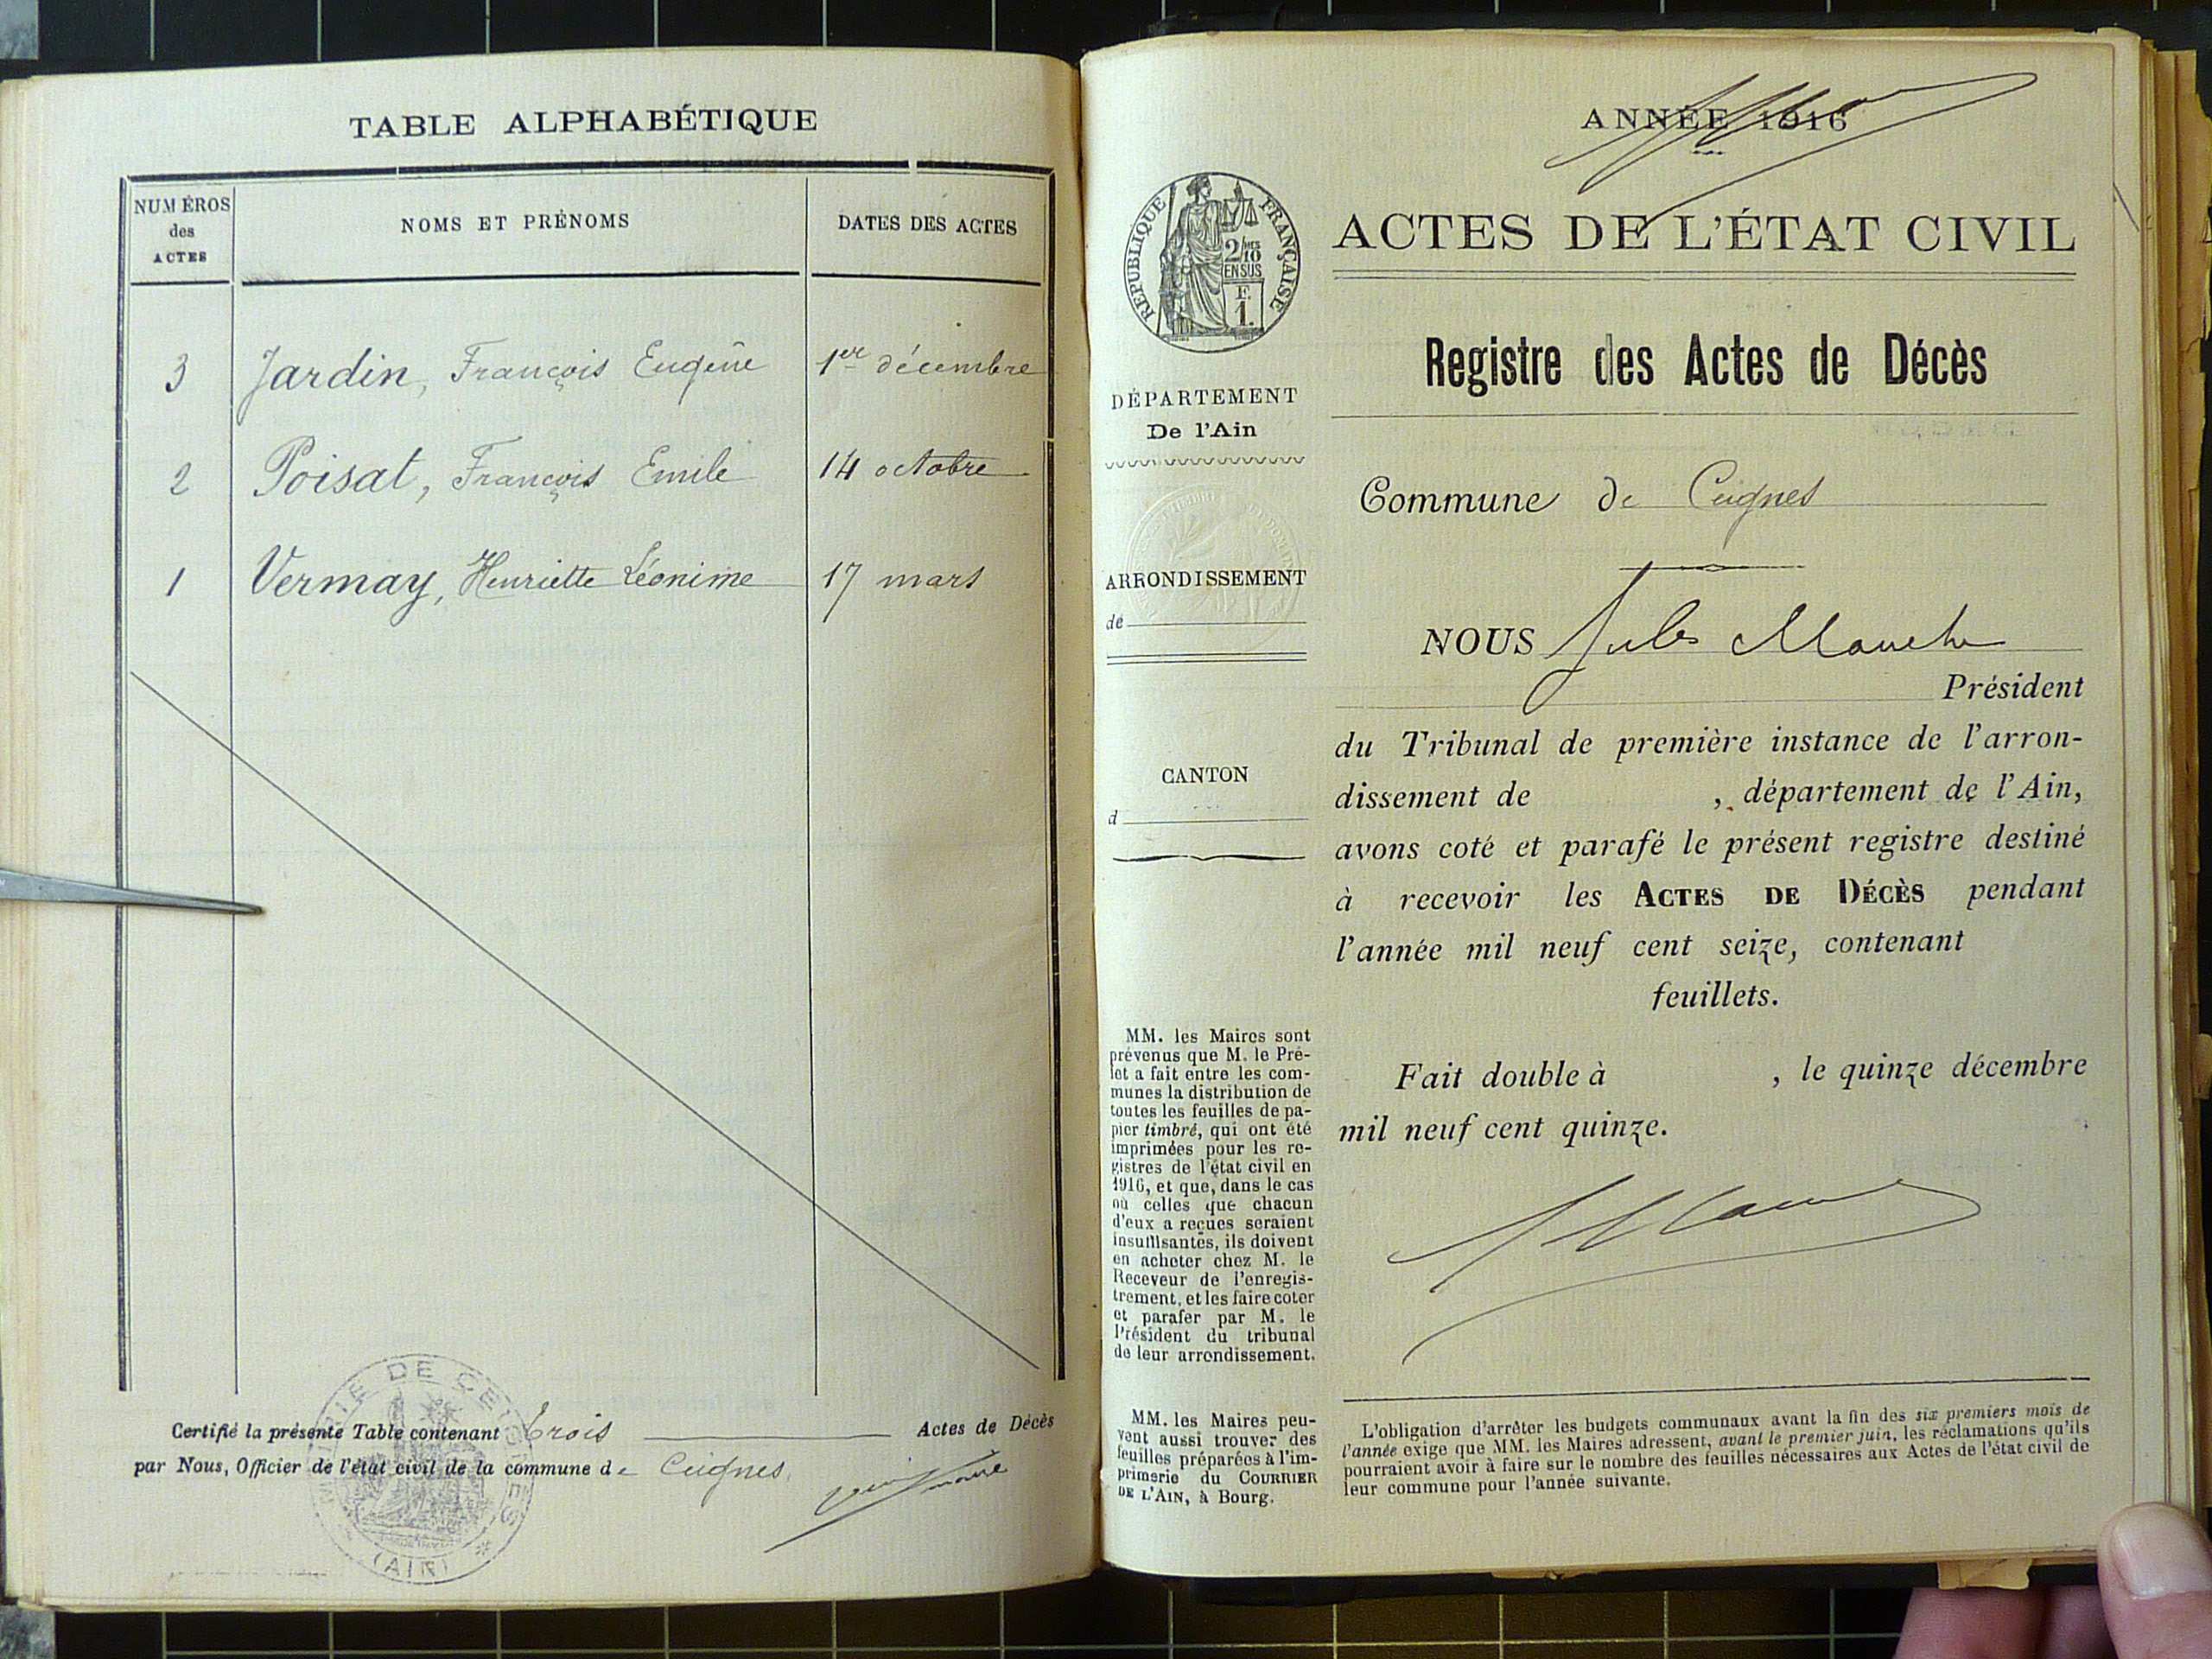 TABLE ALPHABÉTIQUE
NUMÉROS
des
ACTES
NOMS ET PRÉNOMS
DATES DES ACTES
3 Jardin, François Eugène 1er décembre
2 Poisat, François Emile 14 octobre
1 Vermay, Henriette Léonime 17 mars
Certifié la présente Table contenant trois Actes de Décès
par Nous, Officier de l'état civil de la commune de Ceignes.
maire
MAIRIE DE CEIGNES
(AIN)
ANNÉE 1916
RÉPUBLIQUE FRANÇAISE
2/10
EN SUS
E.
1.
ACTES DE L'ÉTAT CIVIL
Registre des Actes de Décès
DÉPARTEMENT
De l'Ain
Commune de Ceignes
ARRONDISSEMENT
de
NOUS Jules
Président
du Tribunal de première instance de l'arron-
dissement de , département de l'Ain,
avons coté et parafé le présent registre destiné
à recevoir les ACTES DE DÉCÈS pendant
l'année mil neuf cent seize, contenant
feuillets.
Fait double à , le quinze décembre
mil neuf cent quinze.
CANTON
d
MM. les Maires sont
prévenus que M. le Pré-
fet a fait entre les com-
munes la distribution de
toutes les feuilles de pa-
pier timbré, qui ont été
imprimées pour les re-
gistres de l'état civil en
1916, et que, dans le cas
où celles que chacun
d'eux a reçues seraient
insuffisantes, ils doivent
en acheter chez M. le
Receveur de l'enregis-
trement, et les faire coter
et parafer par M. le
Président du tribunal
de leur arrondissement.
MM. les Maires peu-
vent aussi trouver des
feuilles préparées à l'im-
primerie du COURRIER
DE L'AIN, à Bourg.
L'obligation d'arrêter les budgets communaux avant la fin des six premiers mois de
l'année exige que MM. les Maires adressent, avant le premier juin, les réclamations qu'ils
pourraient avoir à faire sur le nombre des feuilles nécessaires aux Actes de l'état civil de
leur commune pour l'année suivante.